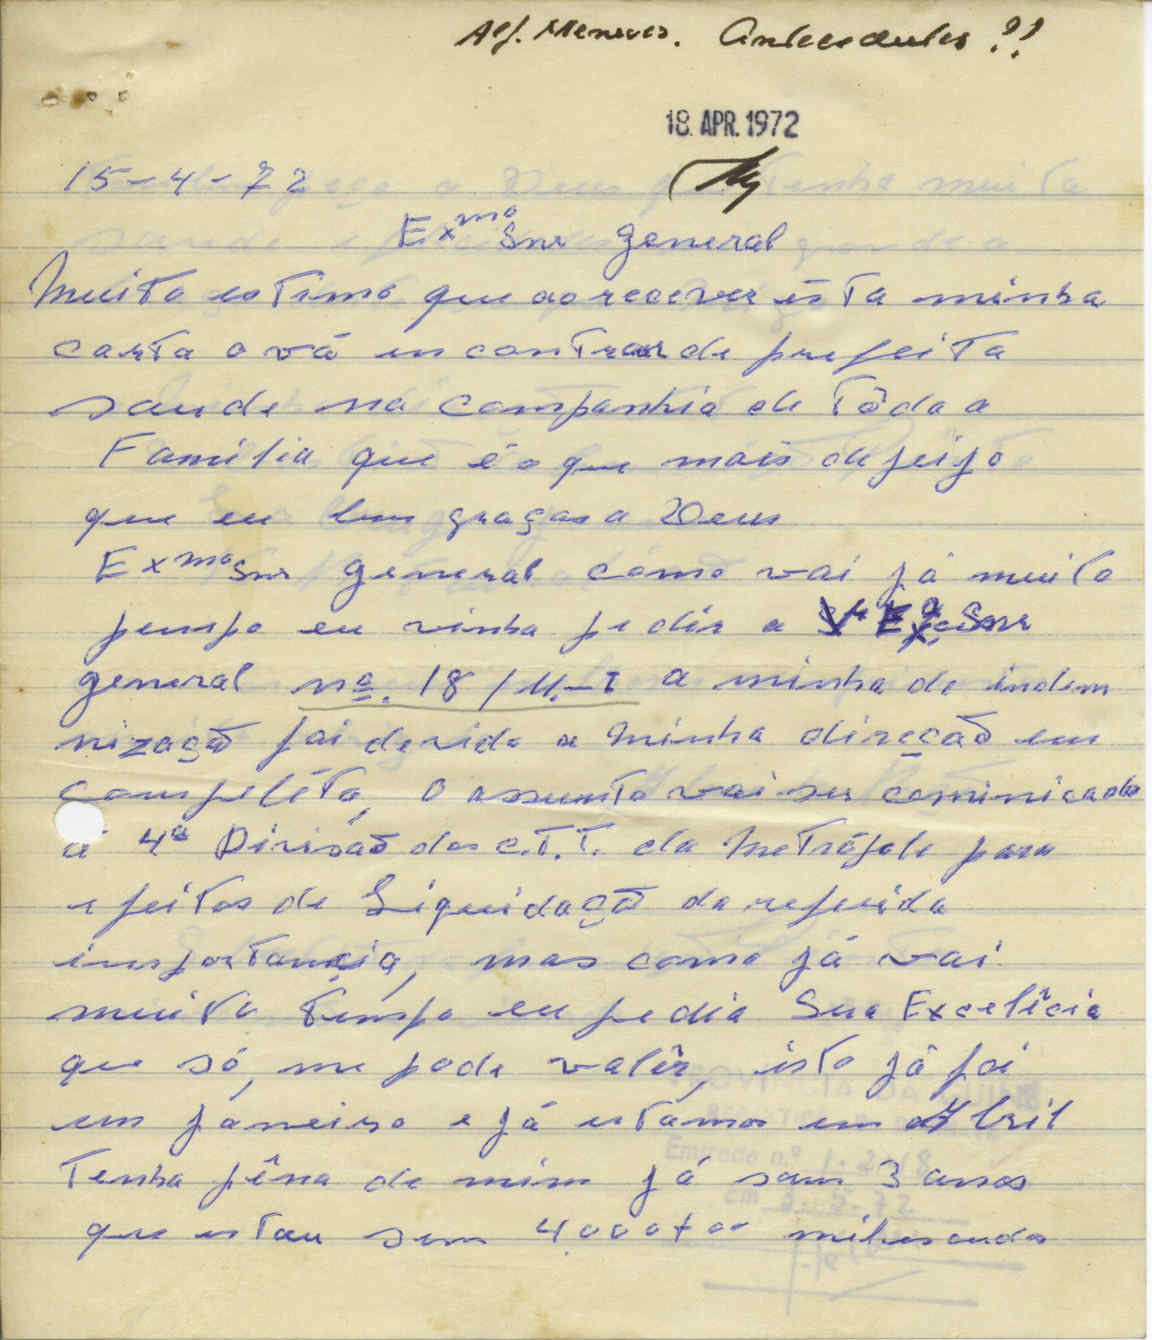 Alf. Meneses. Antecedentes ??
18. APR. 1972
15-4-72
Exmo Snr general
Muito estimo que ao recever ésta minha
carta o vá encontrar de prefeita
saude na companhia de tôda a
Familia que é o que mais desejo
que eu bem graças a Deus
Exmo Snr general cómo vai já muito
tempo eu vinha pedir a V Exa Snr
general nº. 18 / 11.-I a minha de indem
nização foi devido a minha direção em
compléta, O assunto vai ser cominicado
á 4ª Divisão dos C.T.T. da Metrópole para
efeitos de Liquidação da referida
importancia, mas como já vai
muito tempo eu pedia Sua Excelîcia
que só, me pode valêr, isto já foi
em janeiro e já estámos em Abril
Tenha pêna de mim já sam 3 anos
que estou sem 4000+00 milescudos
Entrada n.º
em 3.5.72